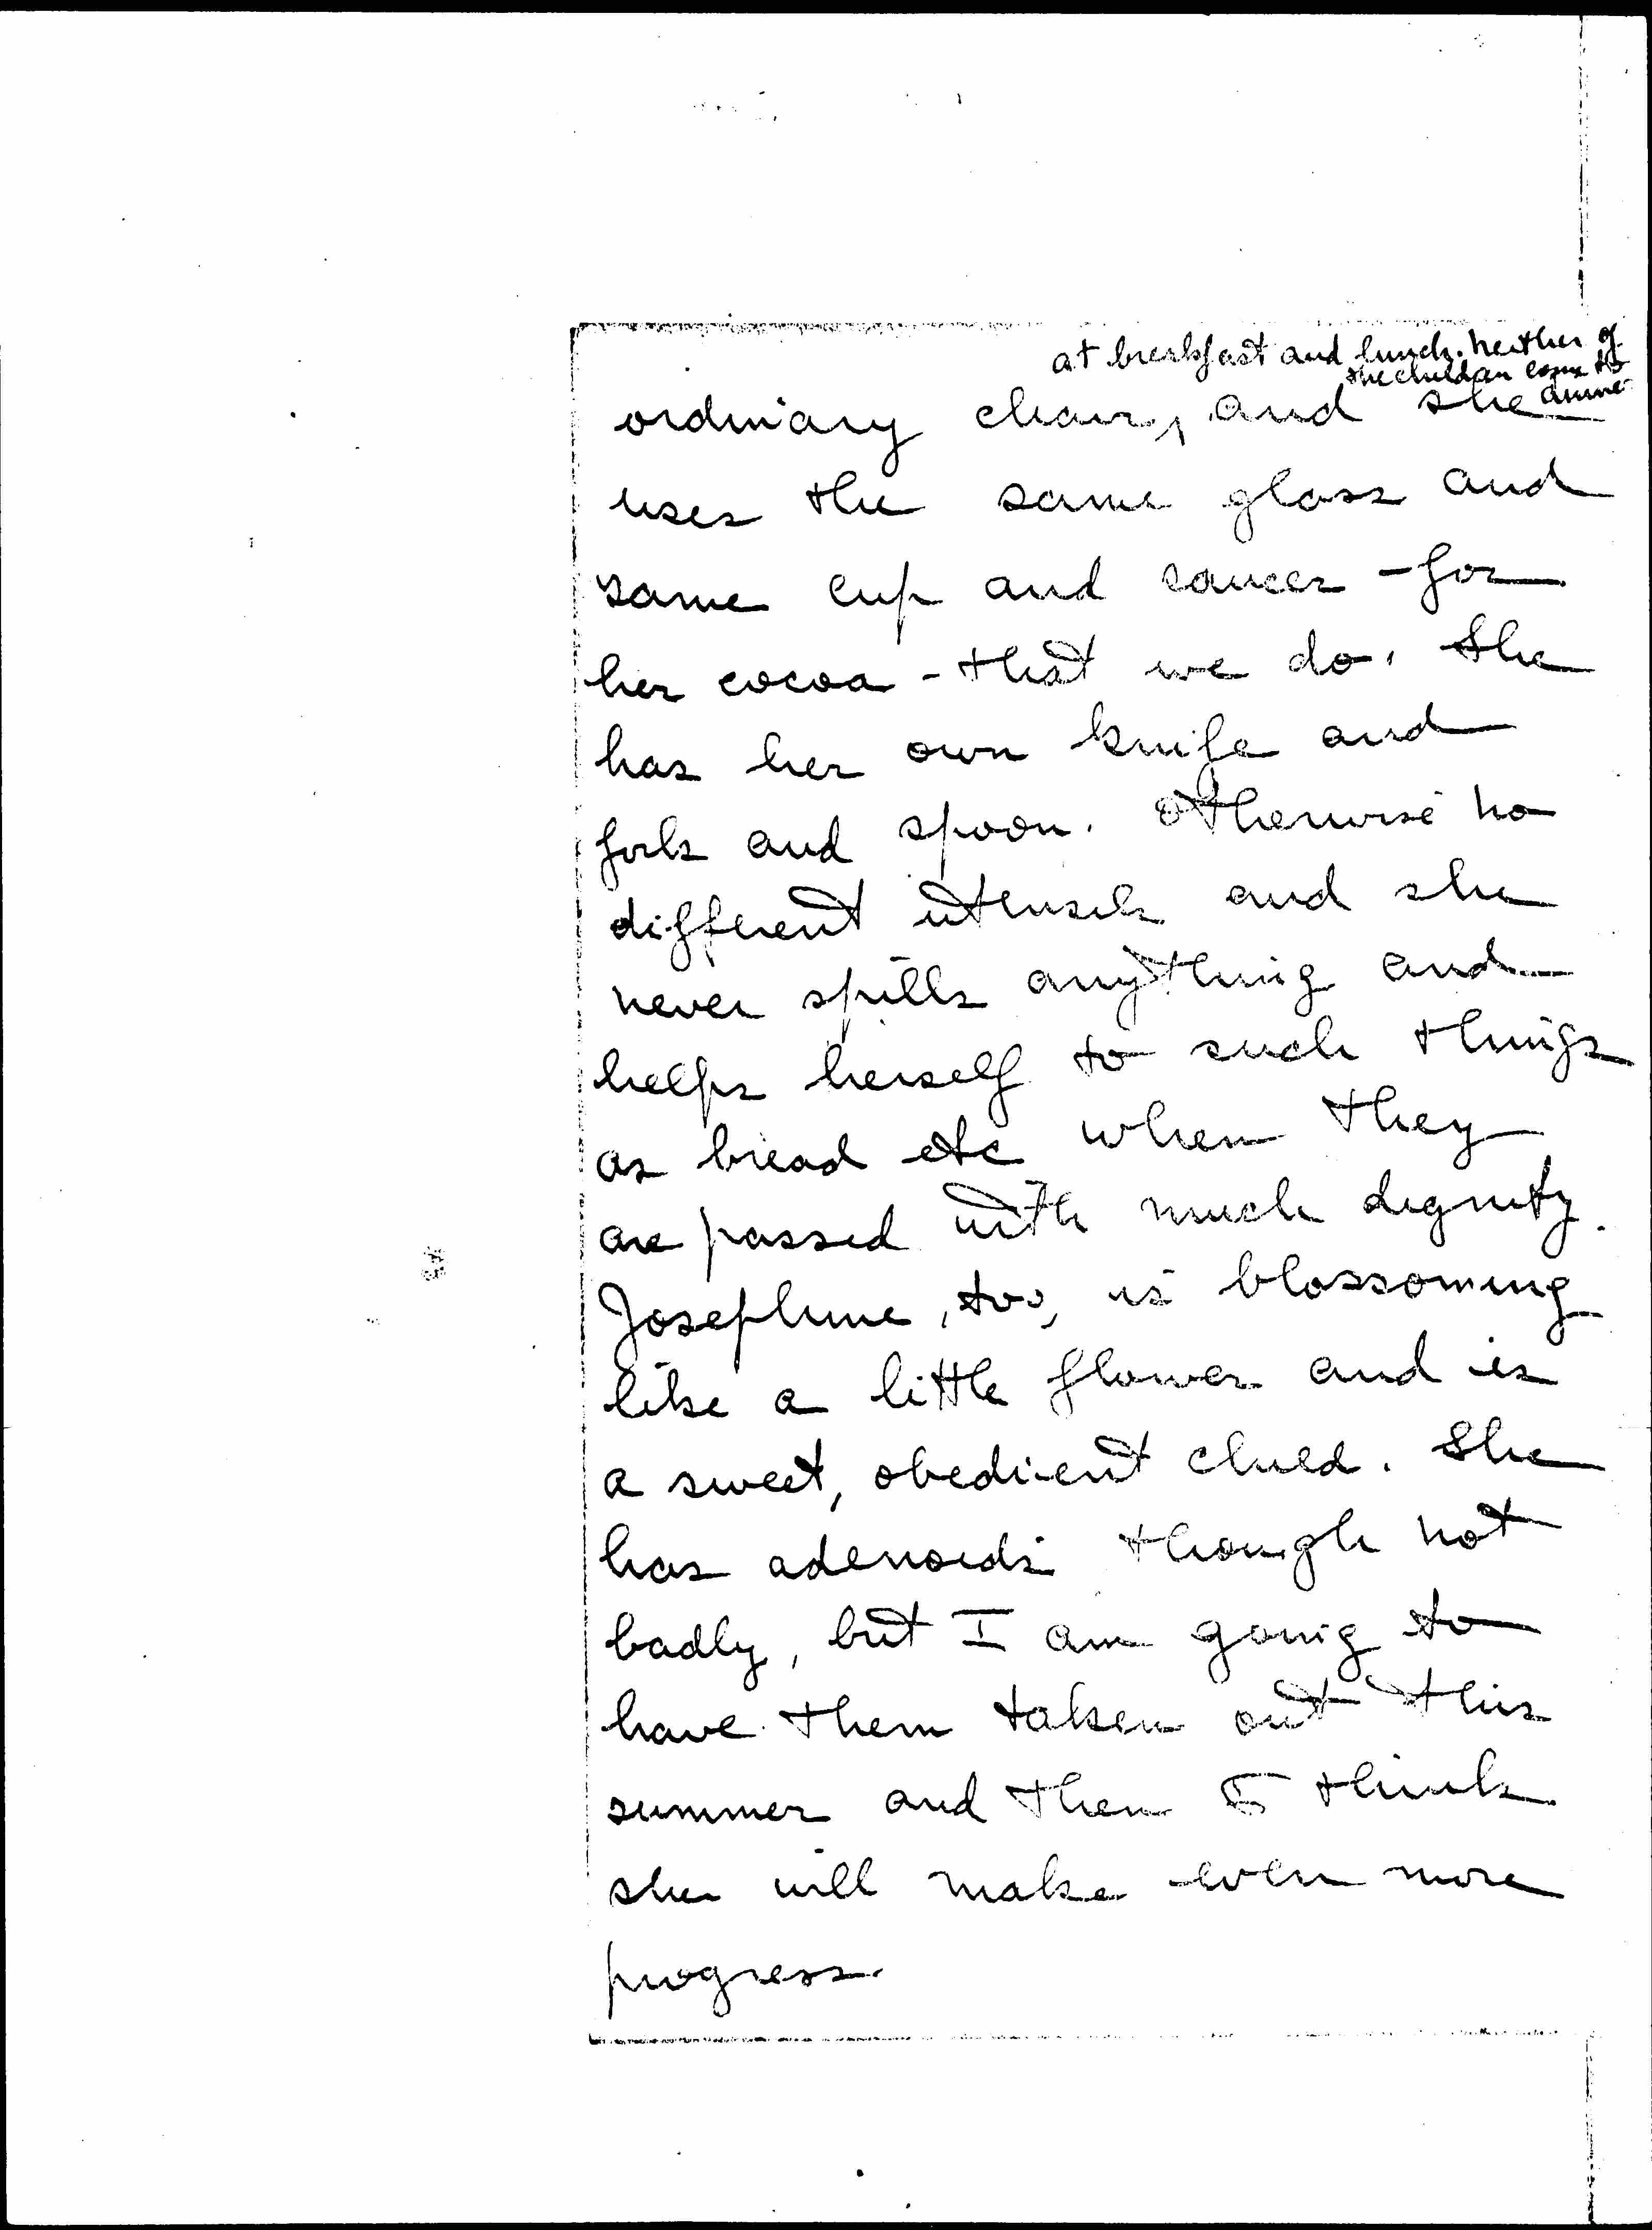 at breakfast and lunch. Neither of
the children come to
dinner
ordinary chair, and she
uses the same glass and
same cup and saucer - for
her cocoa - that we do. She
has her own knife and
fork and spoon. Otherwise no
different utensils and she
never spills anything and
helps herself to such things
as bread etc when they
are passed with much dignity.
Josephine, too, is blossoming
like a little flower and is
a sweet, obedient child. She
has adenoids though not
badly, but I am going to
have them taken out this
summer and then I think
she will make even more
progress.